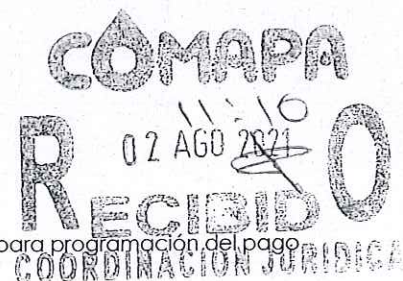 COMAPA
11:10
02 AGO 2021
RECIBIDO
para programación del pago
COORDINACION JURIDICA